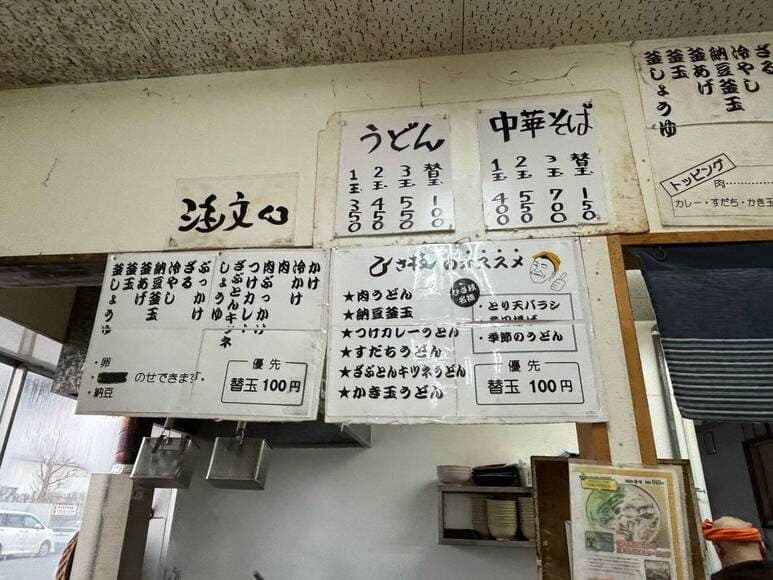 うどん
1玉 350
2玉 450
3玉 550
替玉 100
中華そば
1玉 400
2玉 550
3玉 700
替玉 150
ざる
冷やし
納豆釜玉
釜あげ
釜玉
釜しょうゆ
トッピング
肉
カレー・すだち・かき玉
注文口
かけ
冷かけ
肉
肉ぶっかけ
つけカレー
ざぶとんキツネ
しょうゆ
ぶっかけ
ざる
冷やし
納豆釜玉
釜あげ
釜玉
釜しょうゆ
・卵
のせできます・
・納豆
優先
替玉 100円
ひさ枝のオススメ
★肉うどん
★納豆釜玉
★つけカレーうどん
★すだちうどん
★ざぶとんキツネうどん
★かき玉うどん
ひさ枝名物
・とり天バラシ
・季節のうどん
優先
替玉 100円